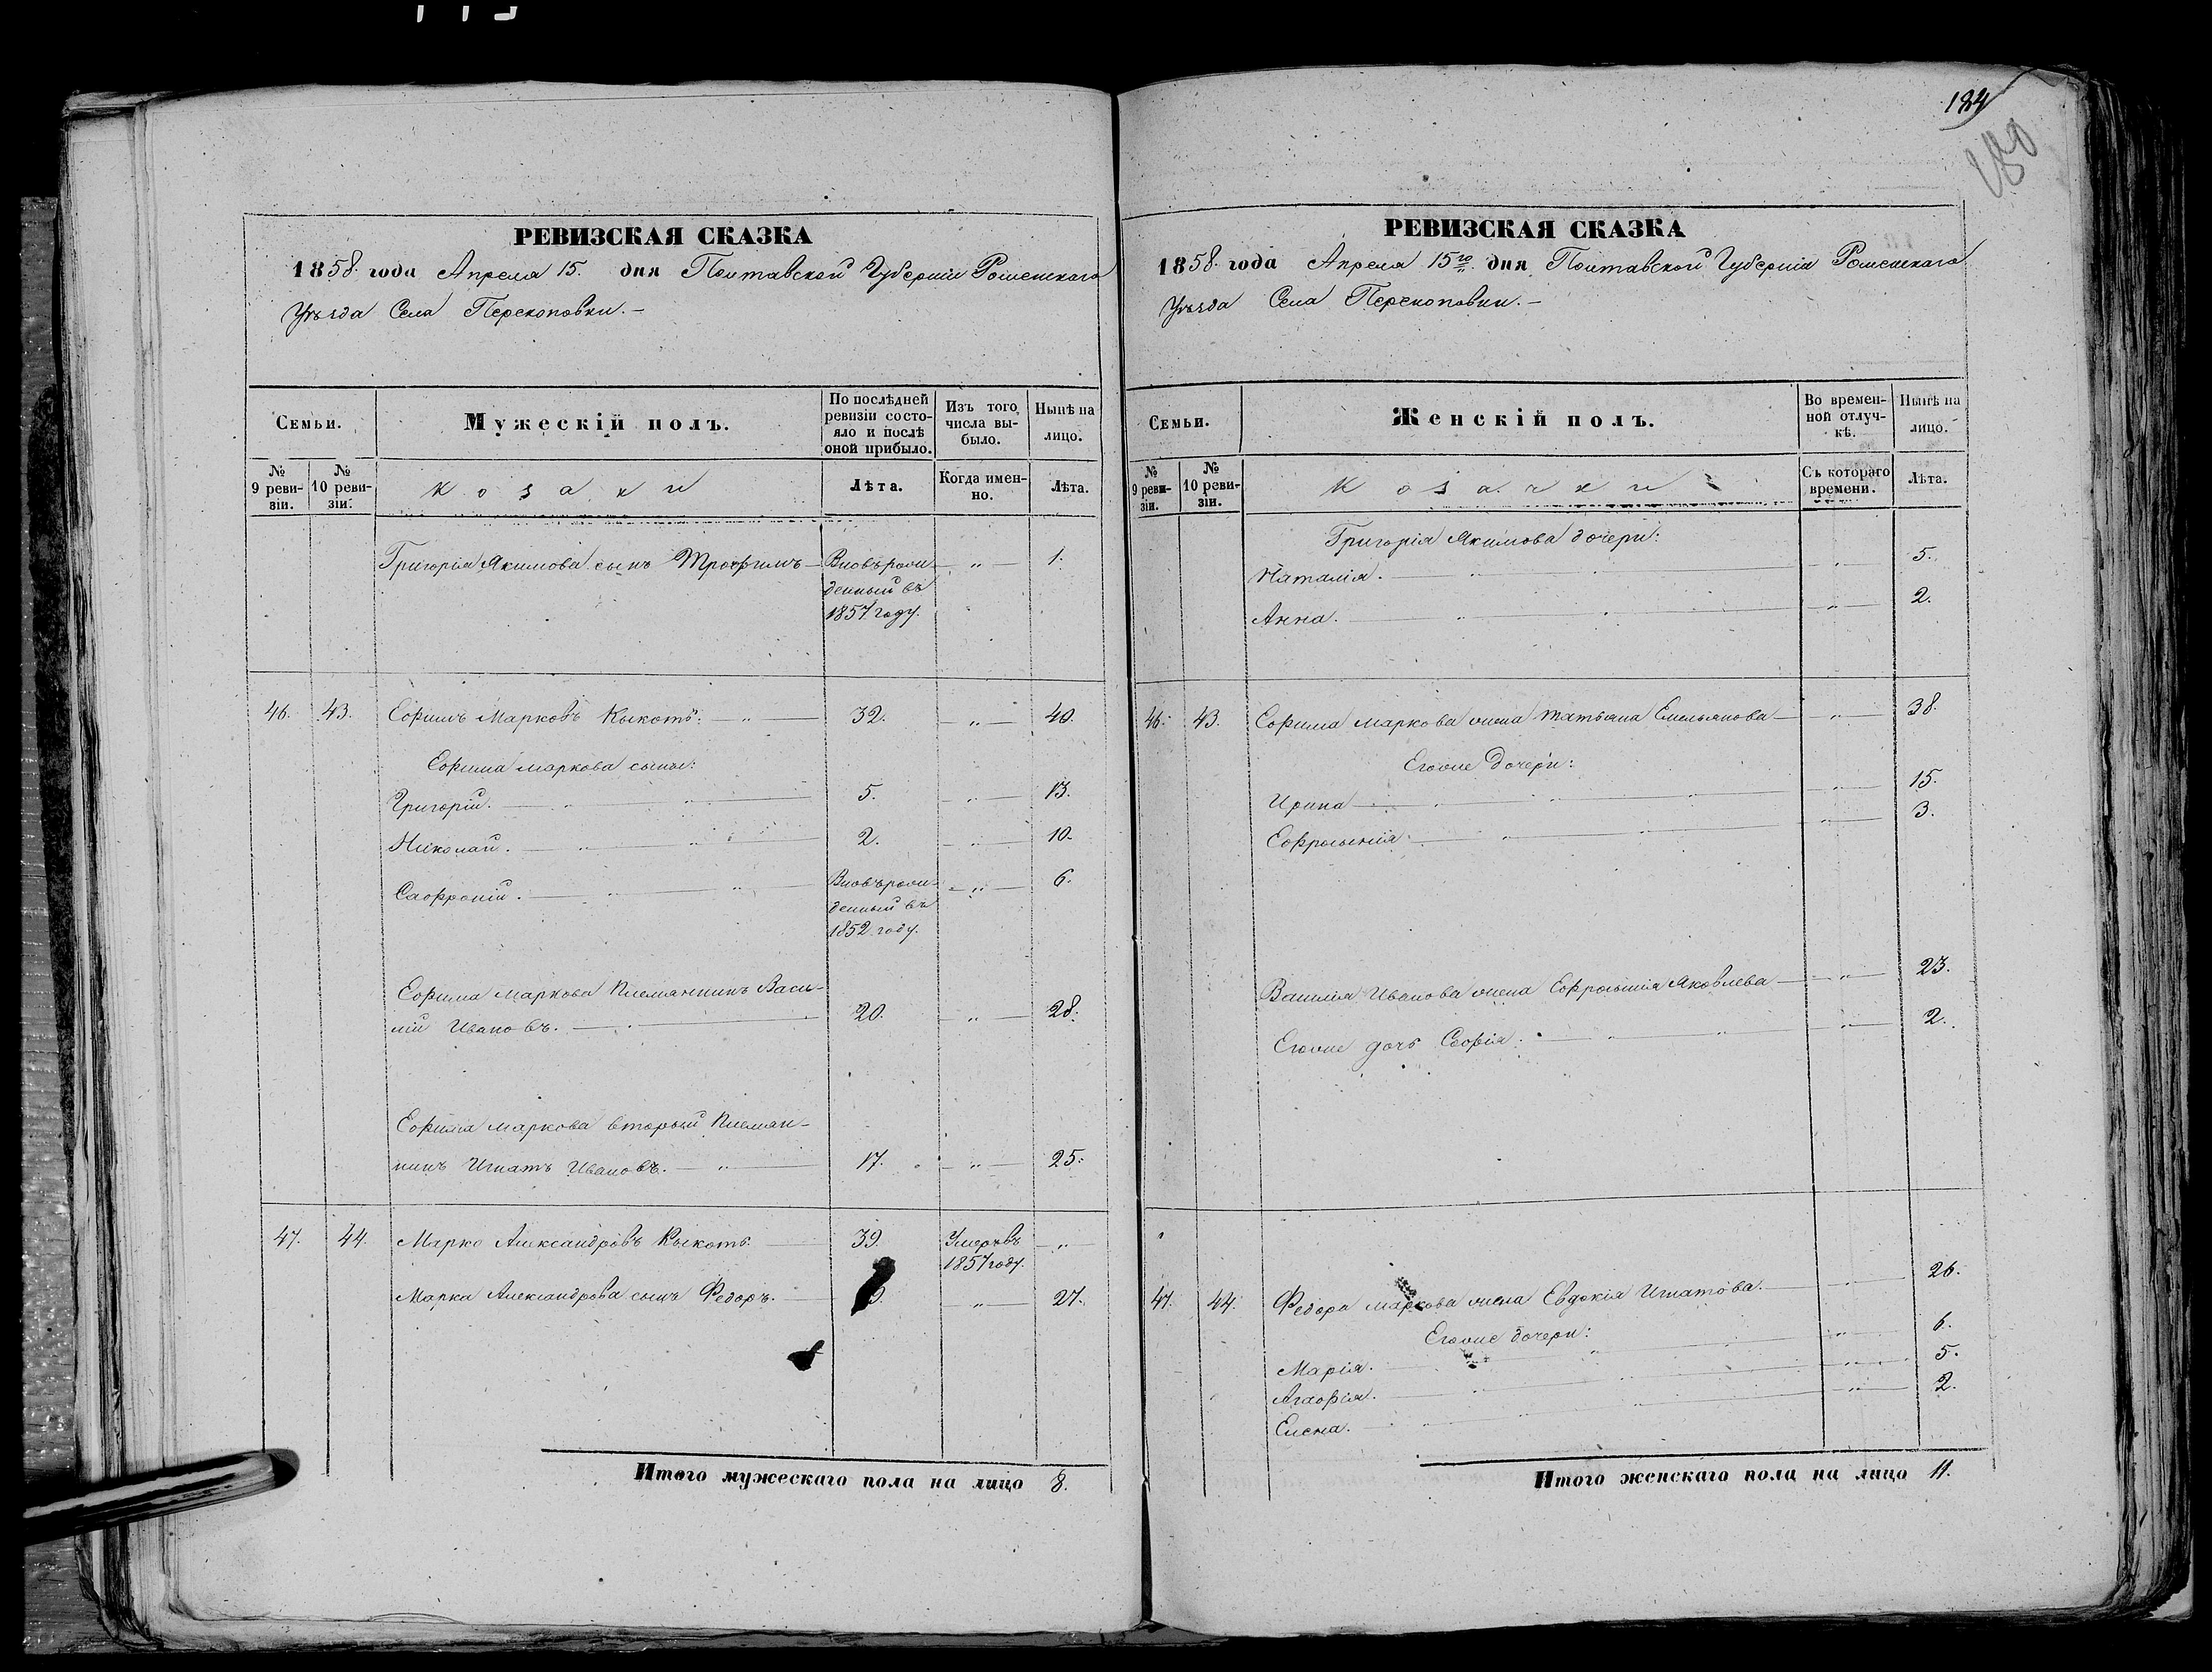 РЕВИЗСКАЯ СКАЗКА
1858. года Апреля 15. дня Полтавской Губерніи Роменскаго
Уѣзда Села Перекоповки.—
Семьи.
Мужескій полъ.
По послѣдней ревизіи состояло и послѣ оной прибыло.
Изъ того числа выбыло.
Нынѣ на лицо.
№ 9 ревизіи.
№ 10 ревизіи.
Козаки
Лѣта.
Когда именно.
Лѣта.
Григорія Якимова сынъ Трофимъ — Вновърож- „ — 1.
денный въ
1857 году.
46. 43. Ефимъ Марковъ Кыкоть. — „ — 32. — „ — 40.
Ефима Маркова сыны:
Григорій. — „ „ — 5. — „ — 13.
Николай. — „ „ — 2. — „ — 10.
Саофроній. — „ „ — Вновърож- — „ — 6.
денный въ
1852 году.
Ефима Маркова племянникъ Васи-
лій Ивановъ. — „ — 20. — „ — 28.
Ефима Маркова вторый племян-
никъ Игнатъ Ивановъ. — „ — 17. — „ — 25.
47. 44. Марко Александровъ Кыкоть. — 39. Умеръ въ — „
1857 году.
Марка Александрова сынъ Федоръ. — „ — 27.
Итого мужескаго пола на лицо 8.
184
180
РЕВИЗСКАЯ СКАЗКА
1858. года Апреля 15го дня Полтавской Губерніи Роменскаго
Уѣзда Села Перекоповки.—
Семьи.
Женскій полъ.
Во временной отлучкѣ.
Нынѣ на лицо.
№ 9 ревизіи.
№ 10 ревизіи.
Козачки
Съ котораго времени.
Лѣта.
Григорія Якимова дочери:
Наталія. — „ „ — „ — 5.
Анна. — „ „ — „ — 2.
46. 43. Ефима Маркова жена Татьяна Емельянова — „ — 38.
Егоже дочери:
Ирина — „ „ „ — „ — 15.
Ефросинія — „ „ — „ — 3.
Василія Иванова жена Ефросинія Яковлева — „ — 23.
Егоже дочь Софія. — „ „ — „ — 2.
47. 44. Федора Маркова жена Евдокія Игнатова. — „ — 26.
Егоже дочери:
Марія. — „ — „ — 6.
Агафія. — „ „ — „ — 5.
Елена. — „ „ — „ — 2.
Итого женскаго пола на лицо 11.